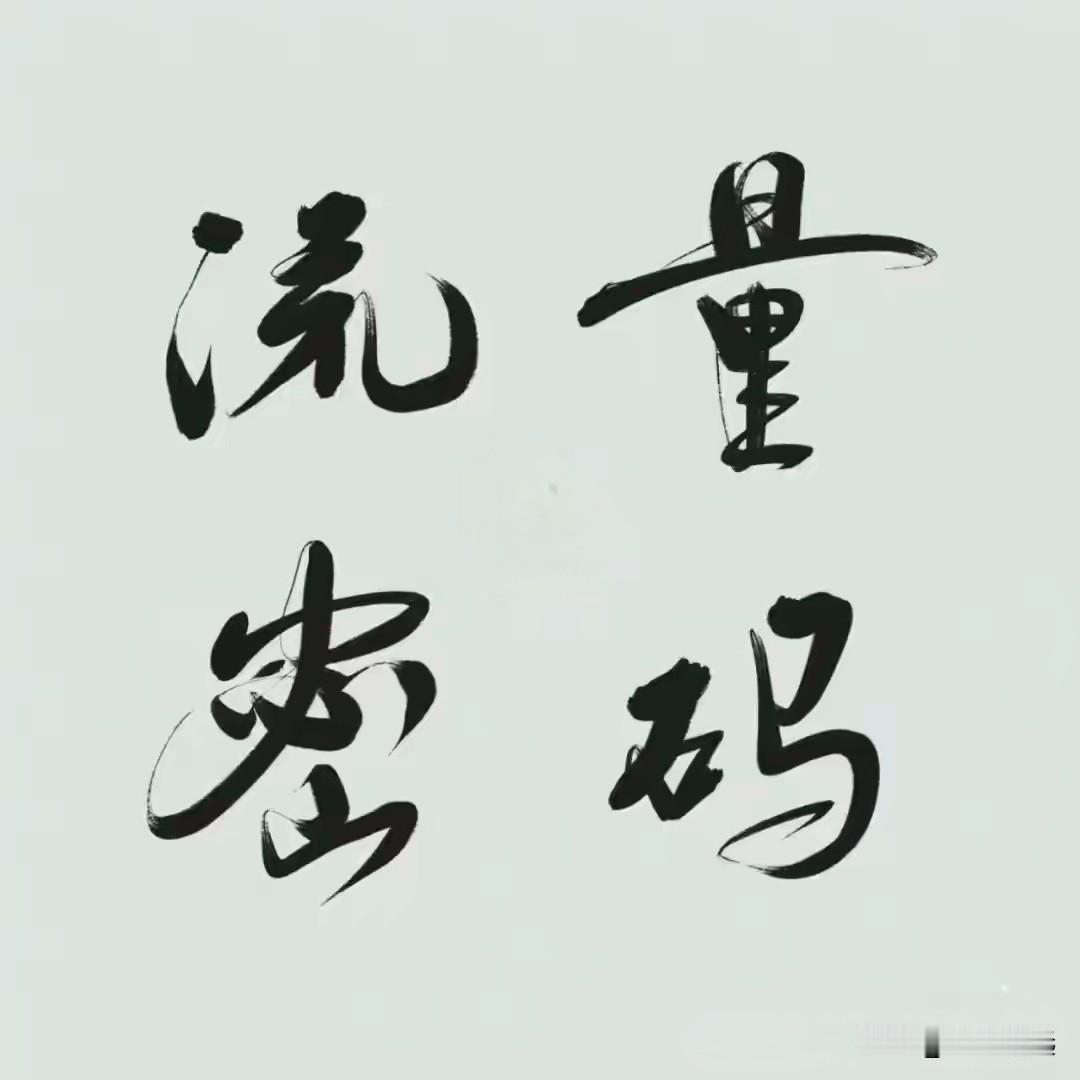 流量
密码